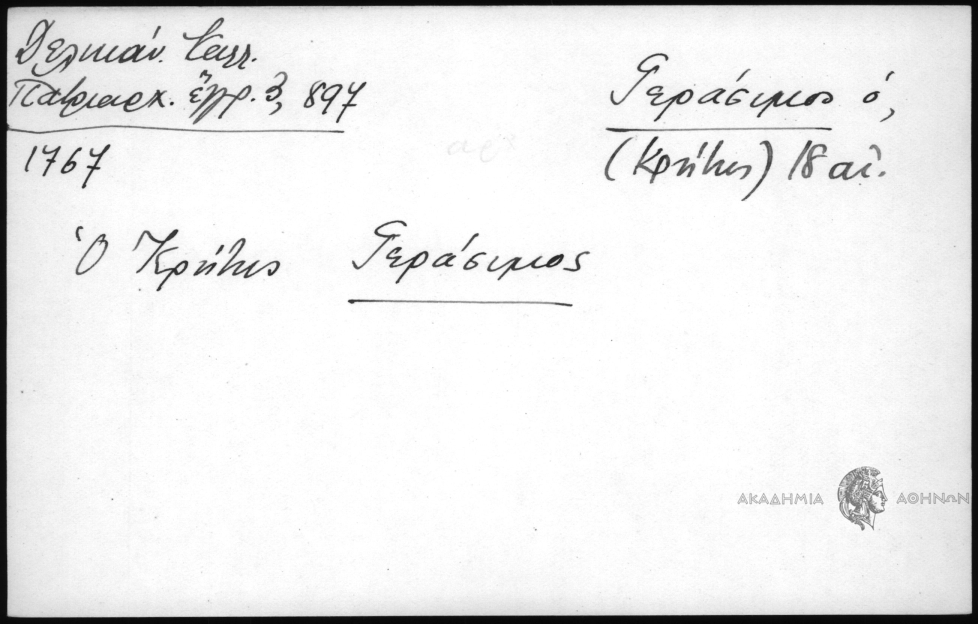 Δελικάν. Καλλ.
Πατριαρχ. ἔγγρ. 3, 897
1767
Γεράσιμος ὁ,
(Κρήτης) 18 αἰ.
Ὁ Κρήτης Γεράσιμος
ΑΚΑΔΗΜΙΑ ΑΘΗΝΩΝ